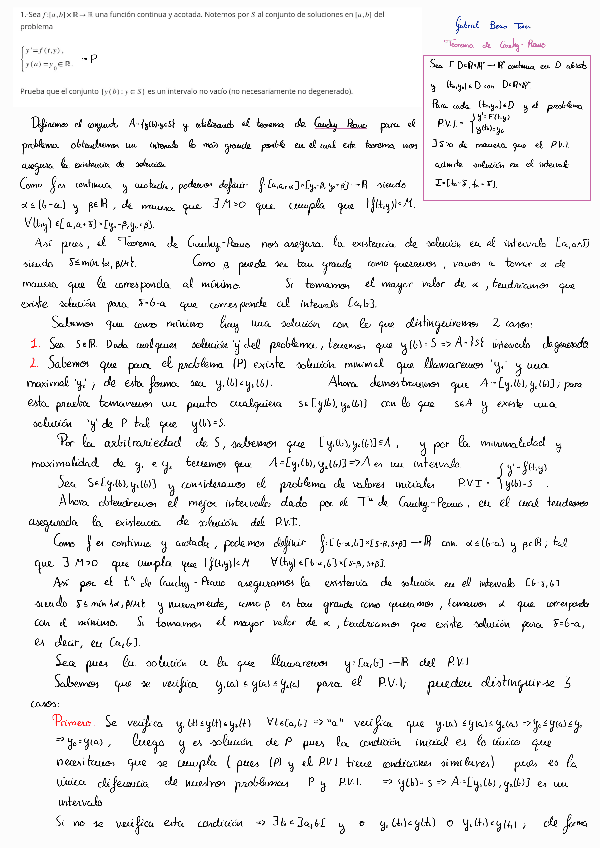 1. Sea f:[a,b]×ℝ→ℝ una función continua y acotada. Notemos por S al conjunto de soluciones en [a,b] del
problema
{ y'=f(t,y),
y(a)=y₀∈ℝ. → P
Prueba que el conjunto {y(b): y∈S} es un intervalo no vacío (no necesariamente no degenerado).
Gabriel
Teorema de Cauchy-Peano
Sea f: D⊂ℝ×ℝᴺ → ℝᴺ continua en D abierto
y (t₀,y₀)∈D con D⊂ℝ×ℝᴺ
Para cada (t₀,y₀)∈D y el problema
P.V.I. = { y'=f(t,y)
y(t₀)=y₀
∃ δ>0 de manera que el P.V.I.
admite solución en el intervalo
I=[t₀-δ, t₀+δ].
Definimos el conjunto A={y(b):y∈S} y utilizando el teorema de Cauchy Peano para el
problema obtendremos un intervalo lo más grande posible en el cual este teorema nos
asegura la existencia de solución
Como f es continua y acotada, podemos definir f:[a,a+α]×[y₀-β,y₀+β]→ℝ siendo
α≤(b-a) y β∈ℝ, de manera que ∃M>0 que cumpla que |f(t,y)|≤M.
∀(t,y)∈[a,a+α]×[y₀-β,y₀+β].
Así pues, el Teorema de Cauchy-Peano nos asegura la existencia de solución en el intervalo [a,a+δ]
siendo δ≤mín{α,β/M}. Como β puede ser tan grande como queramos, vamos a tomar α de
manera que le corresponda al mínimo. Si tomamos el mayor valor de α, tendríamos que
existe solución para δ=b-a que corresponde al intervalo [a,b].
Sabemos que como mínimo hay una solución con lo que distinguiremos 2 casos:
1. Sea S∈ℝ. Dada cualquier solución 'y' del problema, tenemos que y(b)=S => A={S} intervalo degenerado
2. Sabemos que para el problema (P) existe solución minimal que llamaremos 'y₁' y una
maximal 'y₂', de esta forma sea y₁(b)<y₂(b). Ahora demostraremos que A=[y₁(b),y₂(b)], para
esta prueba tomaremos un punto cualquiera s∈[y₁(b),y₂(b)] con lo que s∈A y existe una
solución 'y' de P tal que y(b)=S.
Por la arbitrariedad de S, sabremos que [y₁(b),y₂(b)]⊂A, y por la minimalidad y
maximalidad de y₁ e y₂ tenemos que A=[y₁(b),y₂(b)] => A es un intervalo
Sea S∈[y₁(b),y₂(b)] y consideramos el problema de valores iniciales P.V.I = { y'=f(t,y)
y(b)=S.
Ahora obtendremos el mejor intervalo dado por el Tª de Cauchy-Peano, en el cual tendremos
asegurada la existencia de solución del P.V.I.
Como f es continua y acotada, podemos definir f:[b-α,b]×[S-β,S+β]→ℝ con α≤(b-a) y β∈ℝ; tal
que ∃ M>0 que cumpla que |f(t,y)|≤M ∀(t,y)∈[b-α,b]×[S-β,S+β].
Así por el t.ª de Cauchy-Peano aseguramos la existencia de solución en el intervalo [b-δ,b]
siendo δ≤mín{α,β/M} y nuevamente, como β es tan grande como queramos, tomamos α que corresponda
con el mínimo. Si tomamos el mayor valor de α, tendríamos que existe solución para δ=b-a,
es decir, en [a,b].
Sea pues la solución a la que llamaremos y:[a,b]→ℝ del P.V.I
Sabemos que se verifica y₁(a)≤y(a)≤y₂(a) para el P.V.I; pueden distinguirse 3
casos:
Primero: Se verifica y₁(t)≤y(t)≤y₂(t) ∀t∈[a,b] => "a" verifica que y₁(a)≤y(a)≤y₂(a) => y₀≤y(a)≤y₀
=> y₀=y(a), luego y es solución de P pues la condición inicial es lo único que
necesitamos que se cumpla (pues (P) y el P.V.I tiene condiciones similares) pues es la
única diferencia de nuestros problemas P y P.V.I. => y(b)=S => A=[y₁(b),y₂(b)] es un
intervalo
Si no se verifica esta condición => ∃t₀∈]a,b[ y o y₁(t₀)<y(t₀) o y₂(t₀)<y(t₀); de forma